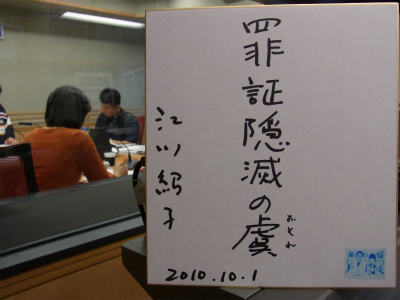 罪証隠滅の虞
おそれ
江川紹子
2010.10.1